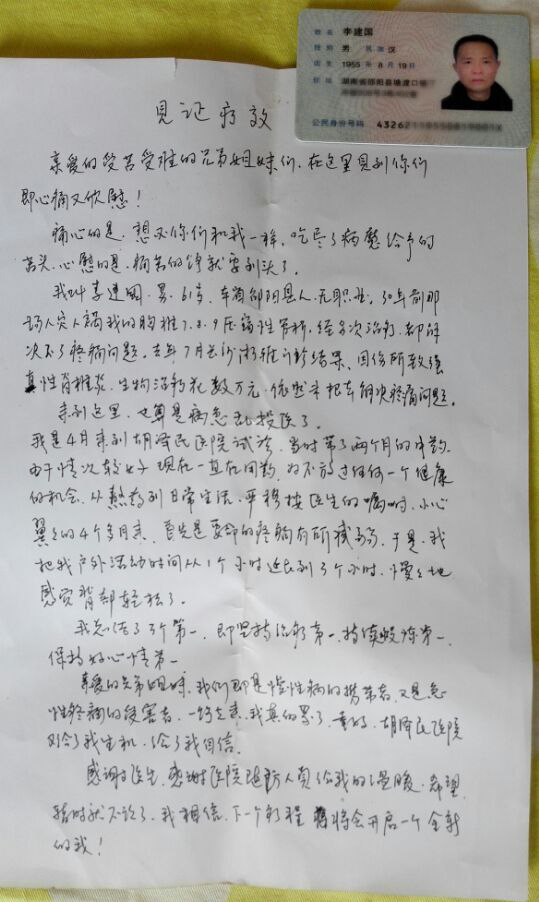 姓名 李建国
性别 男 民族 汉
出生 1955 年 8 月 19 日
住址 湖南省邵阳县塘渡口
公民身份号码 4326
见证疗效
亲爱的受苦受难的兄弟姐妹们，在这里见到你们
即心痛又欣慰！
痛心的是，想必你们和我一样，吃尽了病魔给予的
苦头，心慰的是，痛苦的终就要到头了。
我叫李建国，男，61岁，邵阳县人，无职业，30年前那
场人灾人祸我的胸椎7.8.9压缩性骨折，经多次治疗，都解
决不了疼痛问题。去年7月长沙湘雅诊断结果，因伤所致强
直性脊椎炎，生物治疗花数万元，依然未根本解决疼痛问题。
来到这里，也算是病急乱投医了。
我是4月来到胡泽民医院试诊，当时带了两个月的中药，
由于情况较好，现在一直在用药，为不放过任何一个健康
的机会，从熬药到日常生活，严格按医生的嘱咐，小心
翼翼的4个多月来，首先是要命的疼痛有所减弱，于是，我
把我户外活动时间从1个小时延长到3个小时，慢慢地
感觉背部轻松了。
我总结了3个第一，即坚持治疗第一，持续锻炼第一，
保持好心情第一
亲爱的兄弟姐妹，我们即是慢性病的携带者，又是急
性疼痛的受害者，一路走来，我真的累了，幸好，胡泽民医院
又给了我生机，给了我自信。
感谢医生，感谢医院医护人员给我的温暖，希望
暂时就不说了，我相信，下一个疗程 将会开启一个全新
的我！